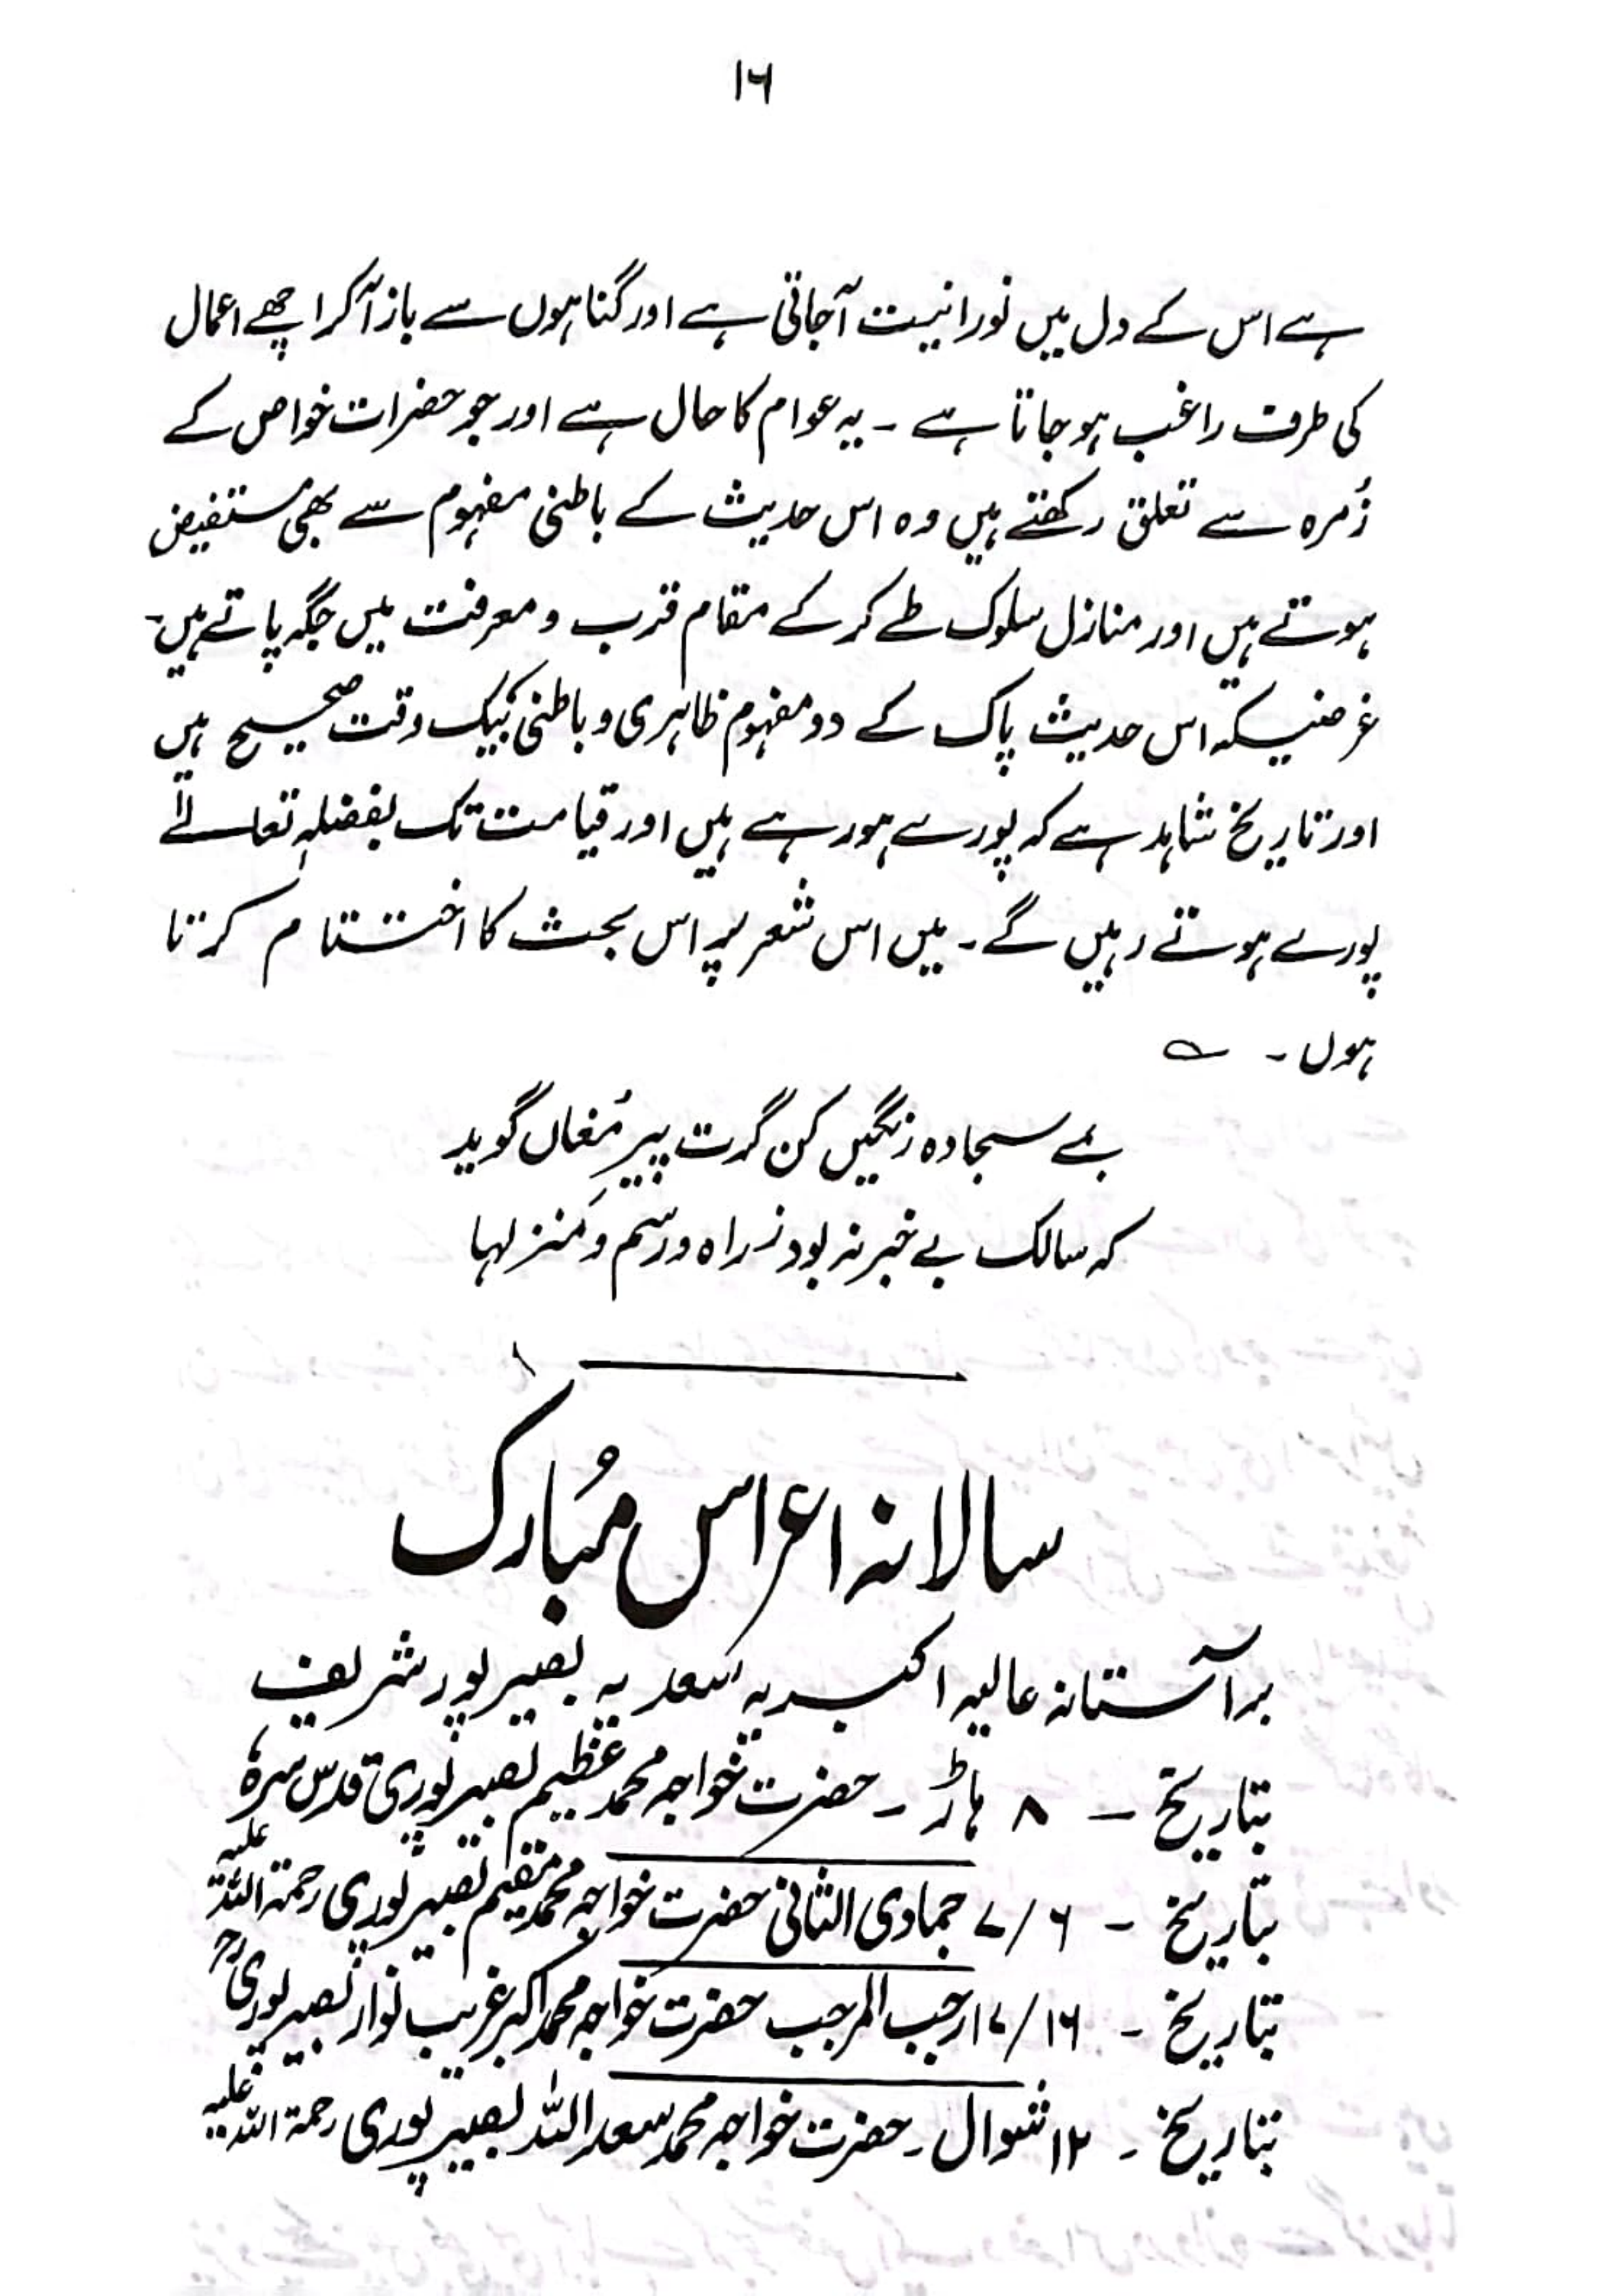 ۱۶
ہے اس کے دل میں نورانیت آجاتی ہے اور گناہوں سے باز آکر اچھے اعمال
کی طرف راغب ہو جاتا ہے ۔ یہ عوام کا حال ہے اور جو حضرات خواص کے
زُمرہ سے تعلق رکھتے ہیں وہ اس حدیث کے باطنی مفہوم سے بھی مستفیض
ہوتے ہیں اور منازل سلوک طے کر کے مقام قرب و معرفت میں جگہ پاتے ہیں ۔
غرضیکہ اس حدیث پاک کے دو مفہوم ظاہری و باطنی بیک وقت صحیح ہیں
اور تاریخ شاہد ہے کہ پورے ہو رہے ہیں اور قیامت تک بفضلہٖ تعالےٰ
پورے ہوتے رہیں گے ۔ میں اس شعر پر اس بحث کا اختتام کرتا
ہوں ۔ ؎
بمے سجادہ رنگیں کن گرت پیرِ مُغاں گوید
کہ سالک بے خبر نہ بود ز راہ و رسم و منزلہا
سالانہ اعراس مُبارک
برآستانہ عالیہ اکبریہ سعدیہ بصیرپور شریف
بتاریخ ۔ ۸ ہاڑ ۔ حضرت خواجہ محمد عظیم بصیرپوری قدس سرہٗ
بتاریخ ۔ ۶/۷ جمادی الثانی حضرت خواجہ محمد مقیم بصیرپوری رحمۃ اللہ علیہ
بتاریخ ۔ ۱۶/۱۷ رجب المرجب حضرت خواجہ محمد اکبر غریب نواز بصیرپوریؒ
بتاریخ ۔ ۱۲ شوال ۔ حضرت خواجہ محمد سعد اللہ بصیرپوری رحمۃ اللہ علیہ